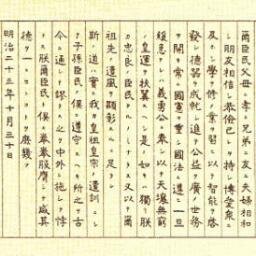 爾臣民父母ニ孝ニ兄弟ニ友ニ夫婦相和
シ朋友相信シ恭儉己レヲ持シ博愛衆ニ
及ホシ學ヲ修メ業ヲ習ヒ以テ智能ヲ啓
發シ德器ヲ成就シ進テ公益ヲ廣メ世務
ヲ開キ常ニ國憲ヲ重シ國法ニ遵ヒ一旦
緩急アレハ義勇公ニ奉シ以テ天壤無窮
ノ皇運ヲ扶翼スヘシ是ノ如キハ獨リ朕
カ忠良ノ臣民タルノミナラス又以テ爾
祖先ノ遺風ヲ顯彰スルニ足ラン
斯ノ道ハ實ニ我カ皇祖皇宗ノ遺訓ニシ
テ子孫臣民ノ倶ニ遵守スヘキ所之ヲ古
今ニ通シテ謬ラス之ヲ中外ニ施シテ悖
ラス朕爾臣民ト倶ニ拳拳服膺シテ咸其
德ヲ一ニセンコトヲ庶幾フ
明治二十三年十月三十日